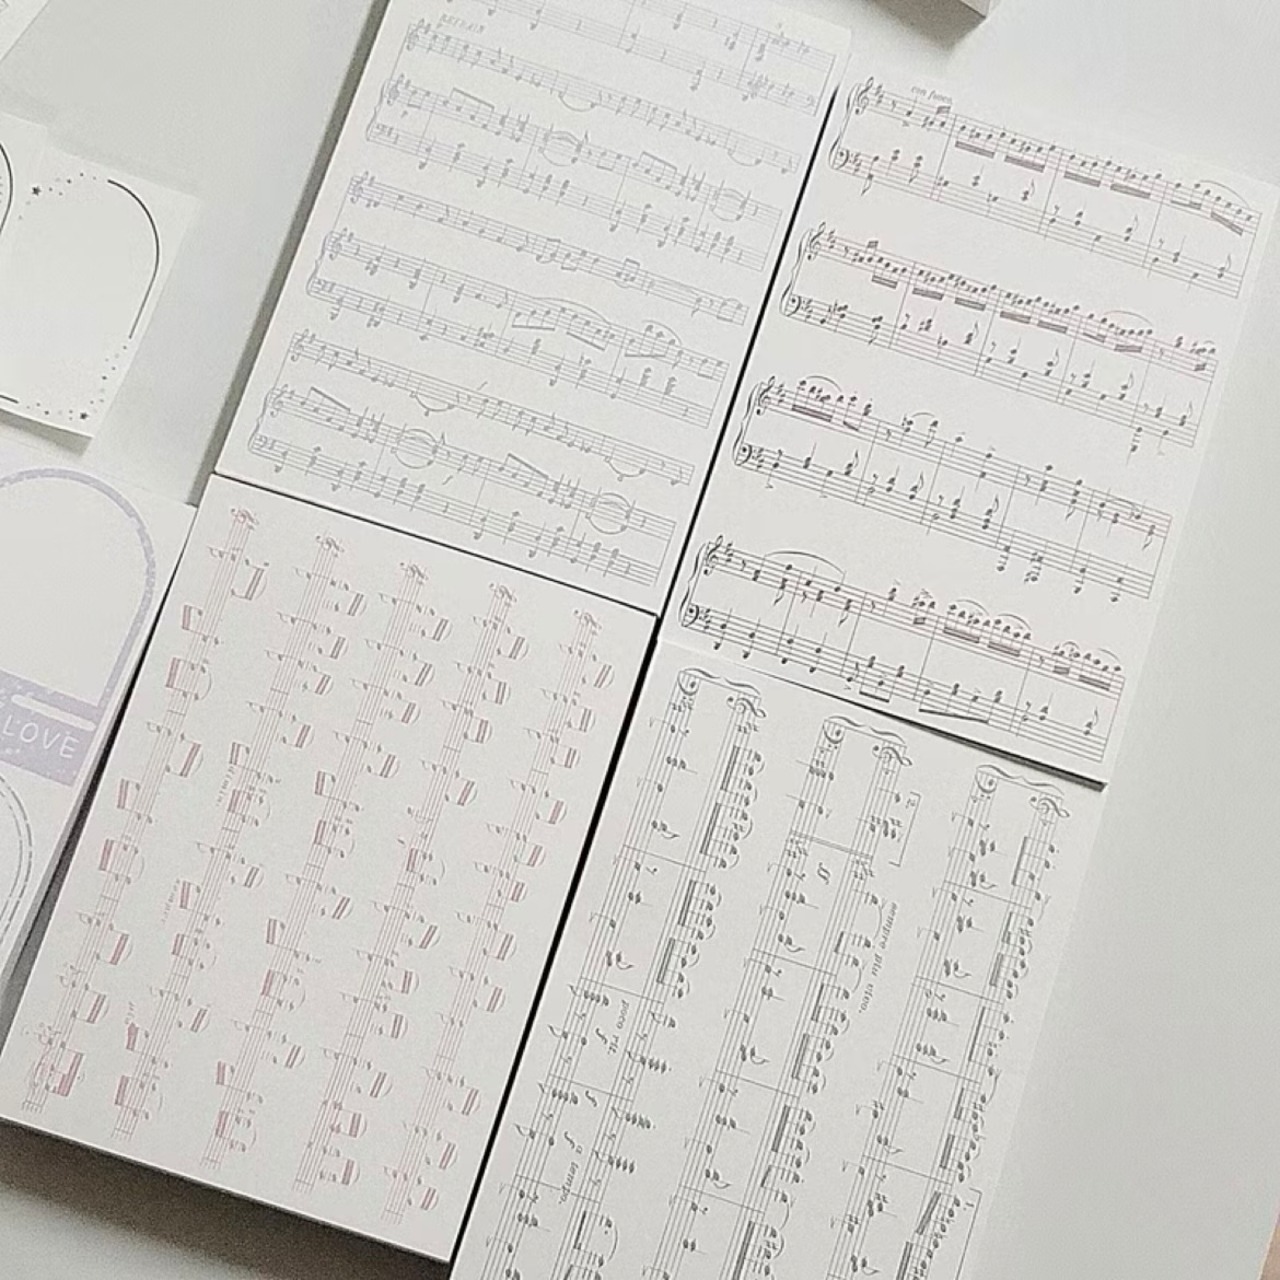 REFRAIN
con fuoco
LOVE
sempre più vivo.
poco rit.
a tempo.